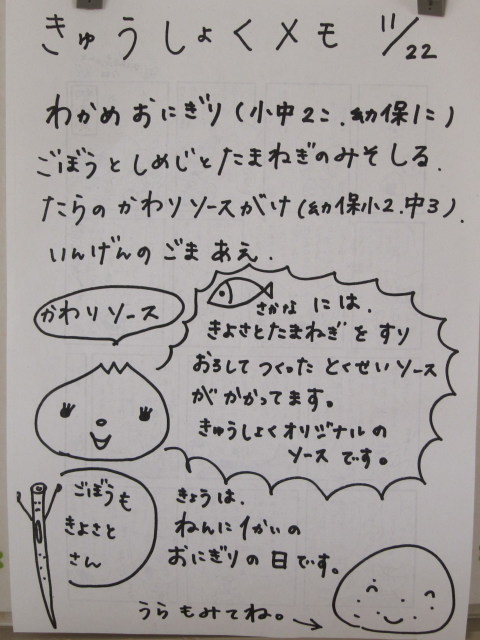 きゅうしょくメモ 11/22
わかめおにぎり(小中2こ、幼保1こ)
ごぼうとしめじとたまねぎのみそしる、
たらのかわりソースがけ(幼保小2、中3)、
いんげんのごまあえ、
かわりソース
さかなには、
きよさとたまねぎをすり
おろしてつくったとくせいソース
がかかってます。
きゅうしょくオリジナルの
ソースです。
ごぼうも
きよさと
さん
きょうは、
ねんに1かいの
おにぎりの日です。
うらもみてね。→